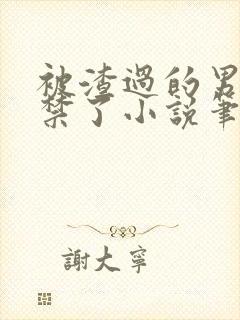 被渣過的男
禁了小說筆
謝大寧